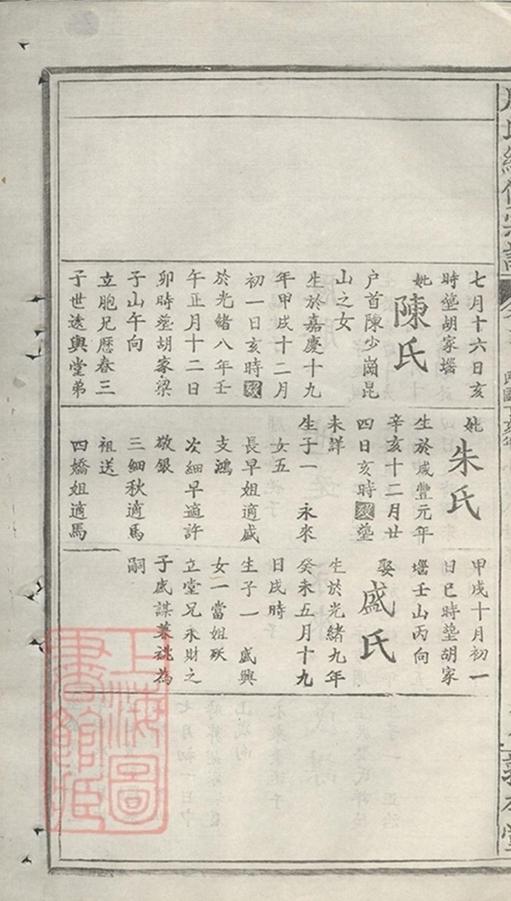 七月十六日亥
時塟胡家壋
妣陳氏
户首陳少崗昆
山之女
生於嘉慶十九
年甲戌十二月
初一日亥時歿
於光緒八年壬
午正月十二日
卯時塟胡家梁
子山午向
立胞兄歷春三
子世透與堂弟
妣朱氏
生於咸豐元年
辛亥十二月廿
四日亥時歿塟
未詳
生子一 永來
女五
長早姐適戚
支鴻
次細早適許
敬銀
三細秋適馬
祖送
四嬌姐適馬
甲戌十月初一
日巳時塟胡家
壋壬山丙向
娶盛氏
生於光緒九年
癸未五月十九
日戌時
生子一 盛興
女一當姐殀
立堂兄永財之
子盛謀兼祧為
嗣
上海圖
書館藏